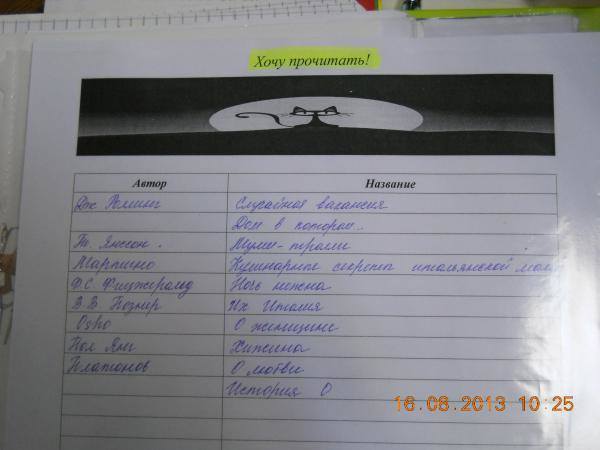 Хочу прочитать!
Автор Название
Дж Ролинг Случайная вакансия
Дом в котором..
Т. Янссон. Муми-тролли
Мартино Кулинарные секреты итальянской мамы
Ф.С. Фицжеральд Ночь нежна
В.В. Познер Их Италия
Osho О женщине
Пол Янг Хижина
Платонов О любви
История О
16.08.2013 10:25